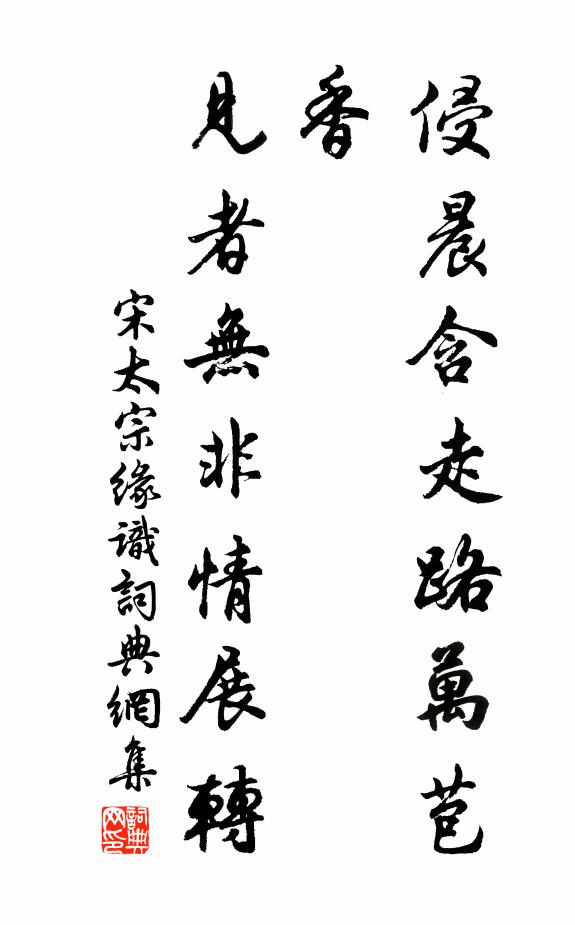 侵晨含走路萬苞
香
見者無非情展轉
宋太宗緣識詞典網集
詞典
网印